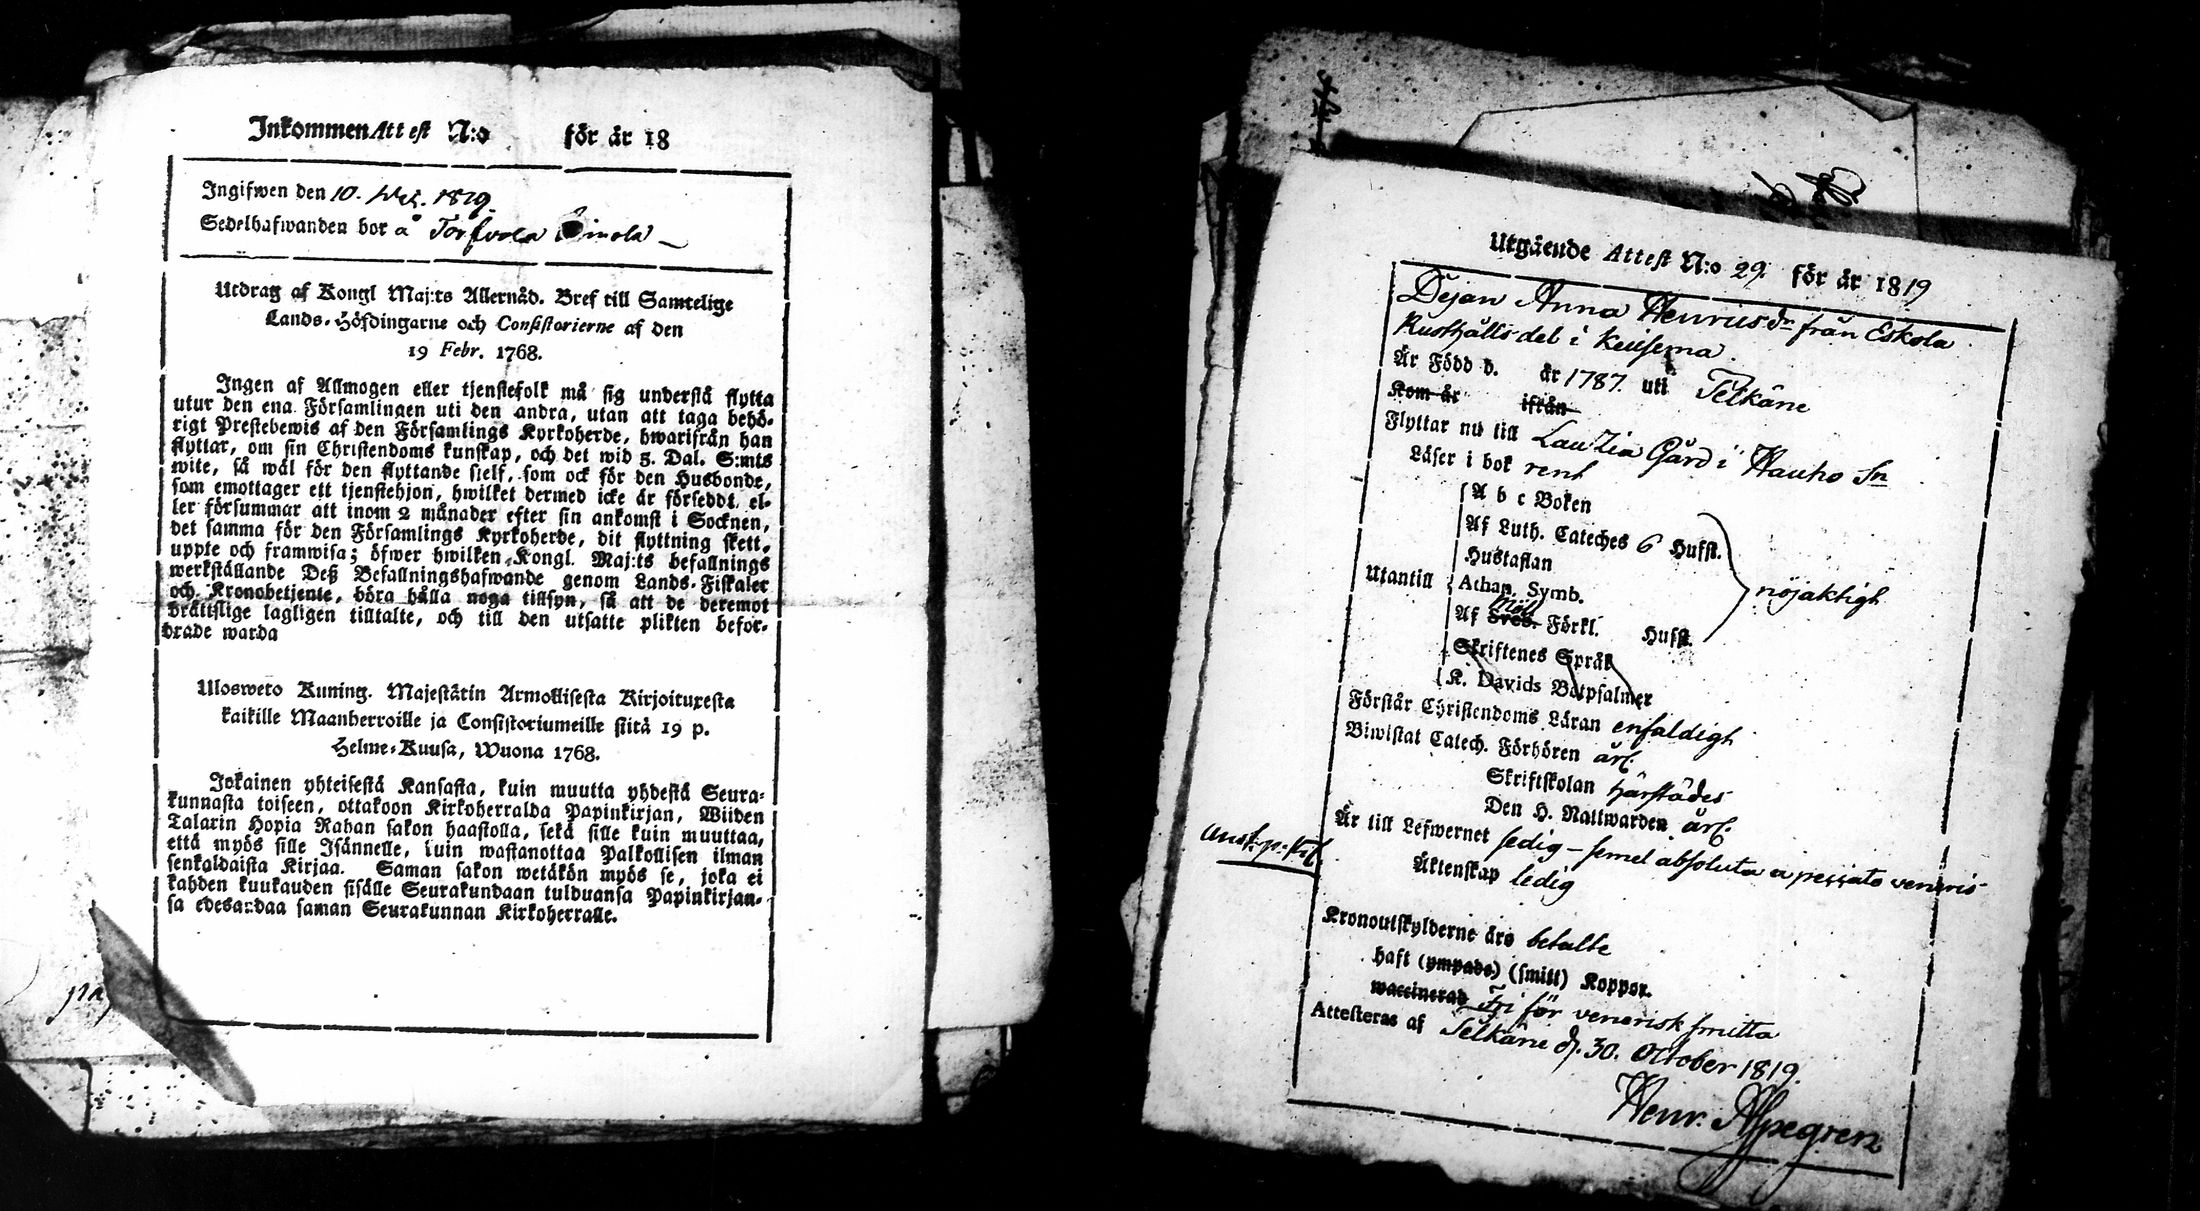 Inkommen Attest N:o för år 18
Ingifwen den 10. 1819.
Sedelhafwanden bor å
Utdrag af Kongl Maj:ts Allernåd. Bref till Samtelige
Lands-Höfdingarne och Consistorierne af den
19 Febr. 1768.
Ingen af Allmogen eller tjenstefolk må sig understå flytta
utur den ena Församlingen uti den andra, utan att taga behö-
rigt Prestebewis af den Församlings Kyrkoherde, hwarifrån han
flyttar, om sin Christendoms kunskap, och det wid 5. Dal. S:mts
wite, så wäl för den flyttande sielf, som ock för den Husbonde,
som emottager ett tjenstehjon, hwilket dermed icke är försedt, el-
ler försummar att inom 2 månader efter sin ankomst i Socknen,
det samma för den Församlings Kyrkoherde, dit flyttning skett,
uppte och framwisa; öfwer hwilken Kongl. Maj:ts befallnings
werkställande Deß Befallningshafwande genom Lands-Fiskaler
och Kronobetjente, böra hålla noga tillsyn, så att de deremot
bråttslige lagligen tilltalte, och till den utsatte plikten befor-
drade warda
Ulosweto Kuning. Majestätin Armollisesta Kirjoituxesta
kaikille Maanherroille ja Consistoriumeille siitä 19 p.
Helme-Kuusa, Wuona 1768.
Jokainen yhteisestä Kansasta, kuin muutta yhdestä Seura-
kunnasta toiseen, ottakoon Kirkoherralda Papinkirjan, Wiiden
Talarin Hopia Rahan sakon haastolla, sekä sille kuin muuttaa,
että myös sille Isännelle, kuin wastanottaa Palkollisen ilman
senkaldaista Kirjaa. Saman sakon wetäkön myös se, joka ei
kahden kuukauden sisälle Seurakundaan tulduansa Papinkirjan-
sa edesandaa saman Seurakunnan Kirkoherralle.
Utgående Attest N:o 29. för år 1819
Pejan Anna Henricsdr från Eskola
Rusthålls del i Keisema.
Är Född d. år 1787. uti Pelkäne
Kom år ifrån
Flyttar nu till Lautzia Gård i Hauho Sn
Läser i bok rent
A b c Boken
Af Luth. Cateches 6 Hufst.
Hustaflan
Utantill Athan. Symb. nöjaktigt
Af Sveb. Förkl. Hufst.
Skriftenes Språk
K. Davids Botpsalmer
Förstår Christendoms Läran enfaldigt
Biwistat Catech. Förhören årl.
Skriftskolan härstädes
Den H. Nattwarden årl.
Är till Lefwernet ledig - semel absoluta a peccato veneris
Äktenskap ledig
Kronoutskylderne äro betalte
haft (ympade) (smitt) Koppor.
waccinerad Fri för venerisk smitta
Attesteras af Pelkäne d. 30. October 1819.
Henr.